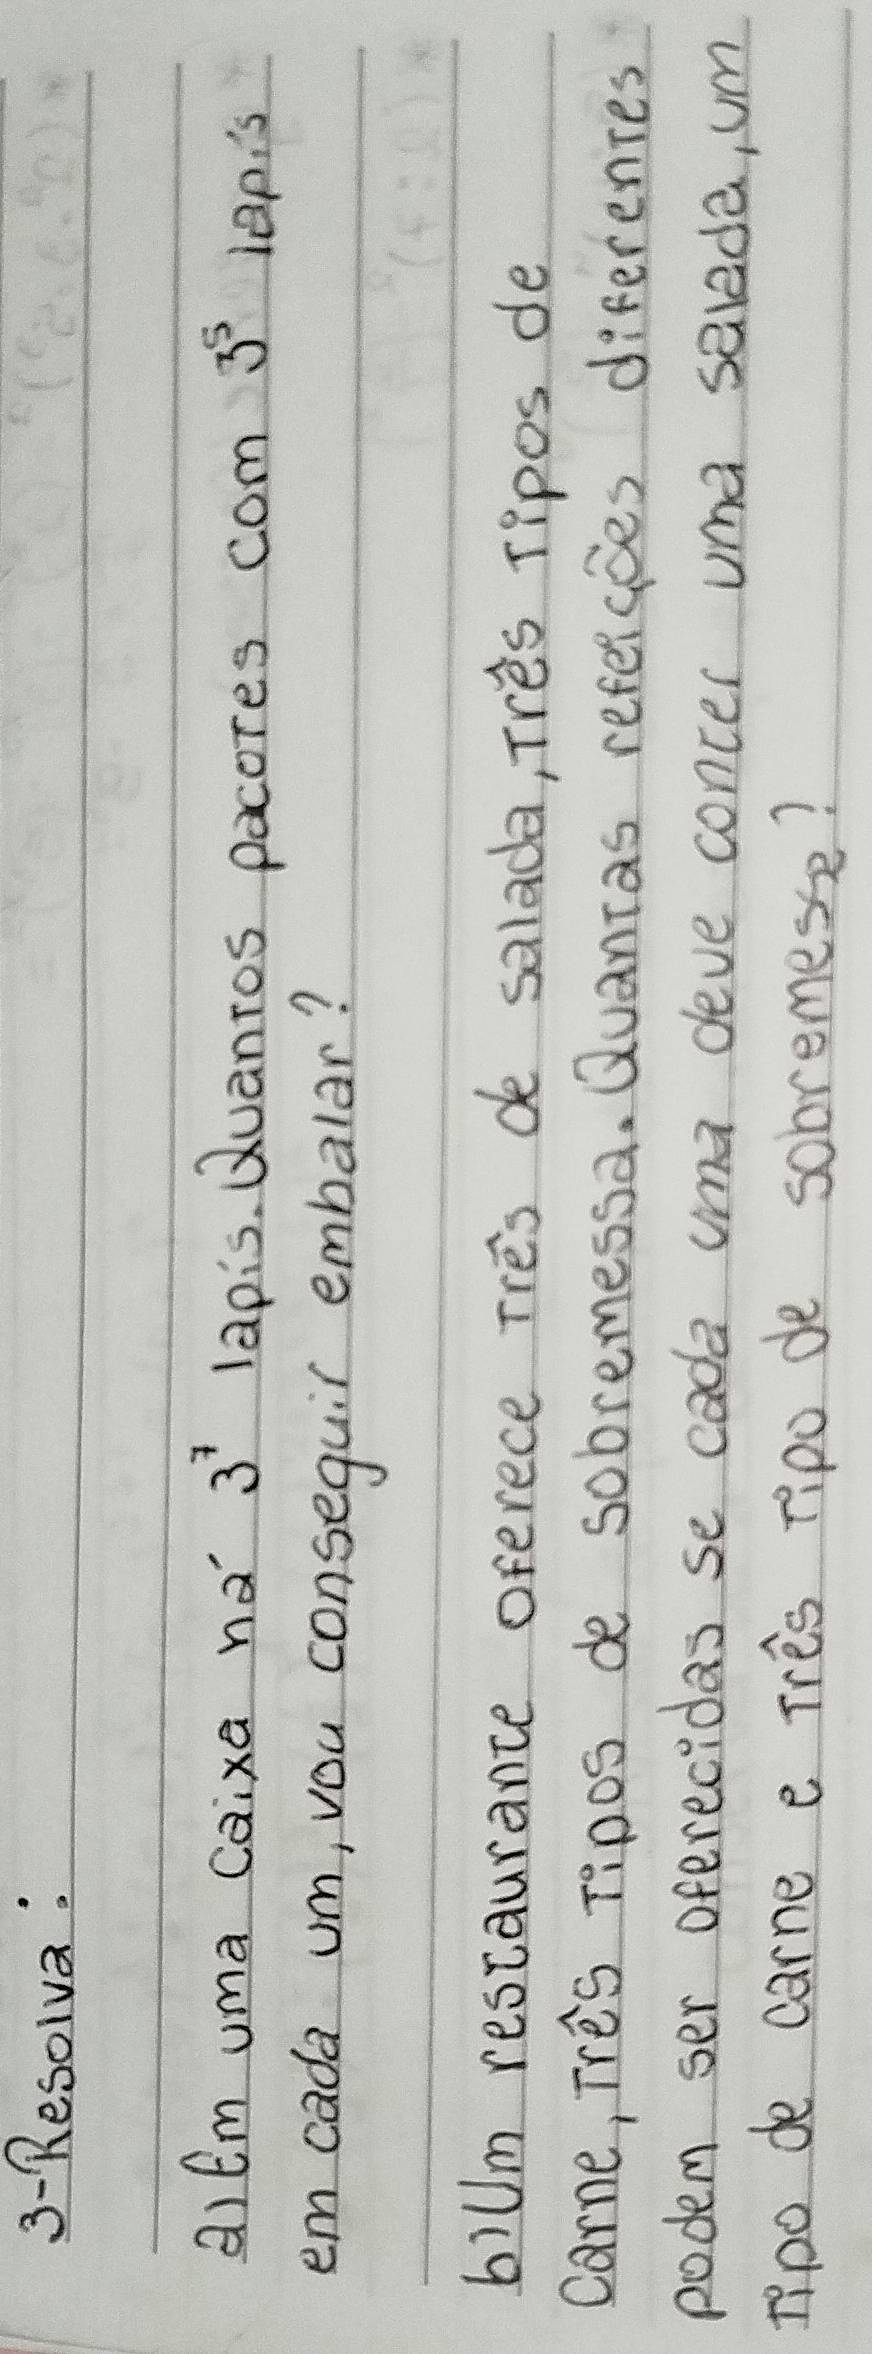 3-Resolva:
a) Em uma caixa há 3⁷ lapis. Quantos pacotes com 3⁵ lapis
em cada um, vou conseguir embalar?
b) Um restaurante oferece três de salada, três tipos de
carne, três tipos de sobremessa. Quantas refeições diferentes
podem ser oferecidas se cada uma deve conter uma salada, um
tipo de carne e três tipo de sobremesa?